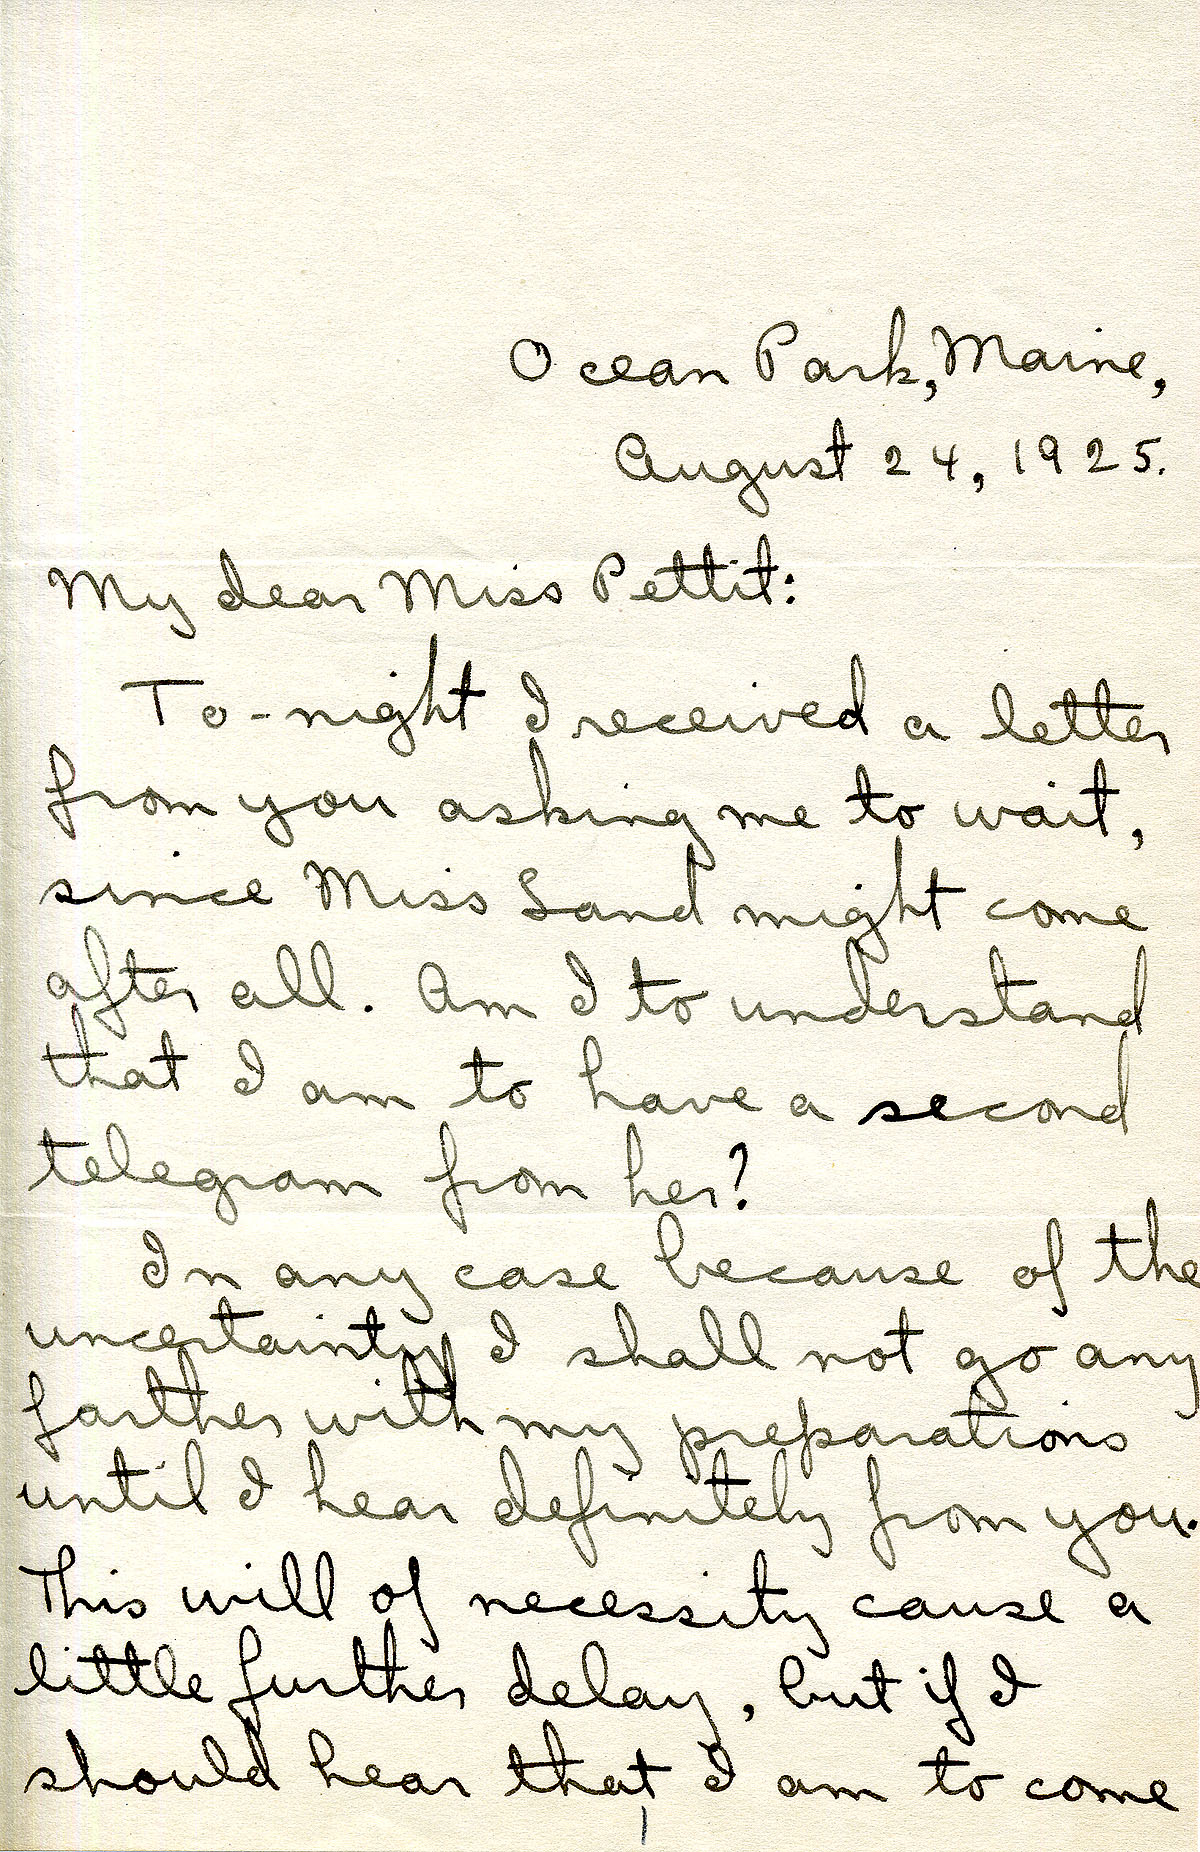 Ocean Park, Maine,
August 24, 1925.
My dear Miss Pettit:
To-night I received a letter
from you asking me to wait,
since Miss Sand might come
after all. Am I to understand
that I am to have a second
telegram from her?
In any case because of the
uncertainty I shall not go any
farther with my preparations
until I hear definitely from you.
This will of necessity cause a
little further delay, but if I
should hear that I am to come